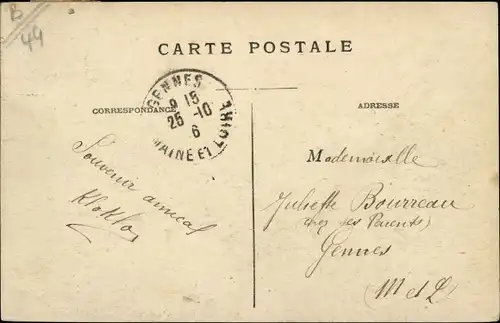 B
49
CARTE POSTALE
CORRESPONDANCE
ADRESSE
GENNES
9 15
25 -10
6
MAINE ET LOIRE
Souvenir amical
Mademoiselle
Juliette Bourreau
chez ses Parents
Gennes
(M et L)